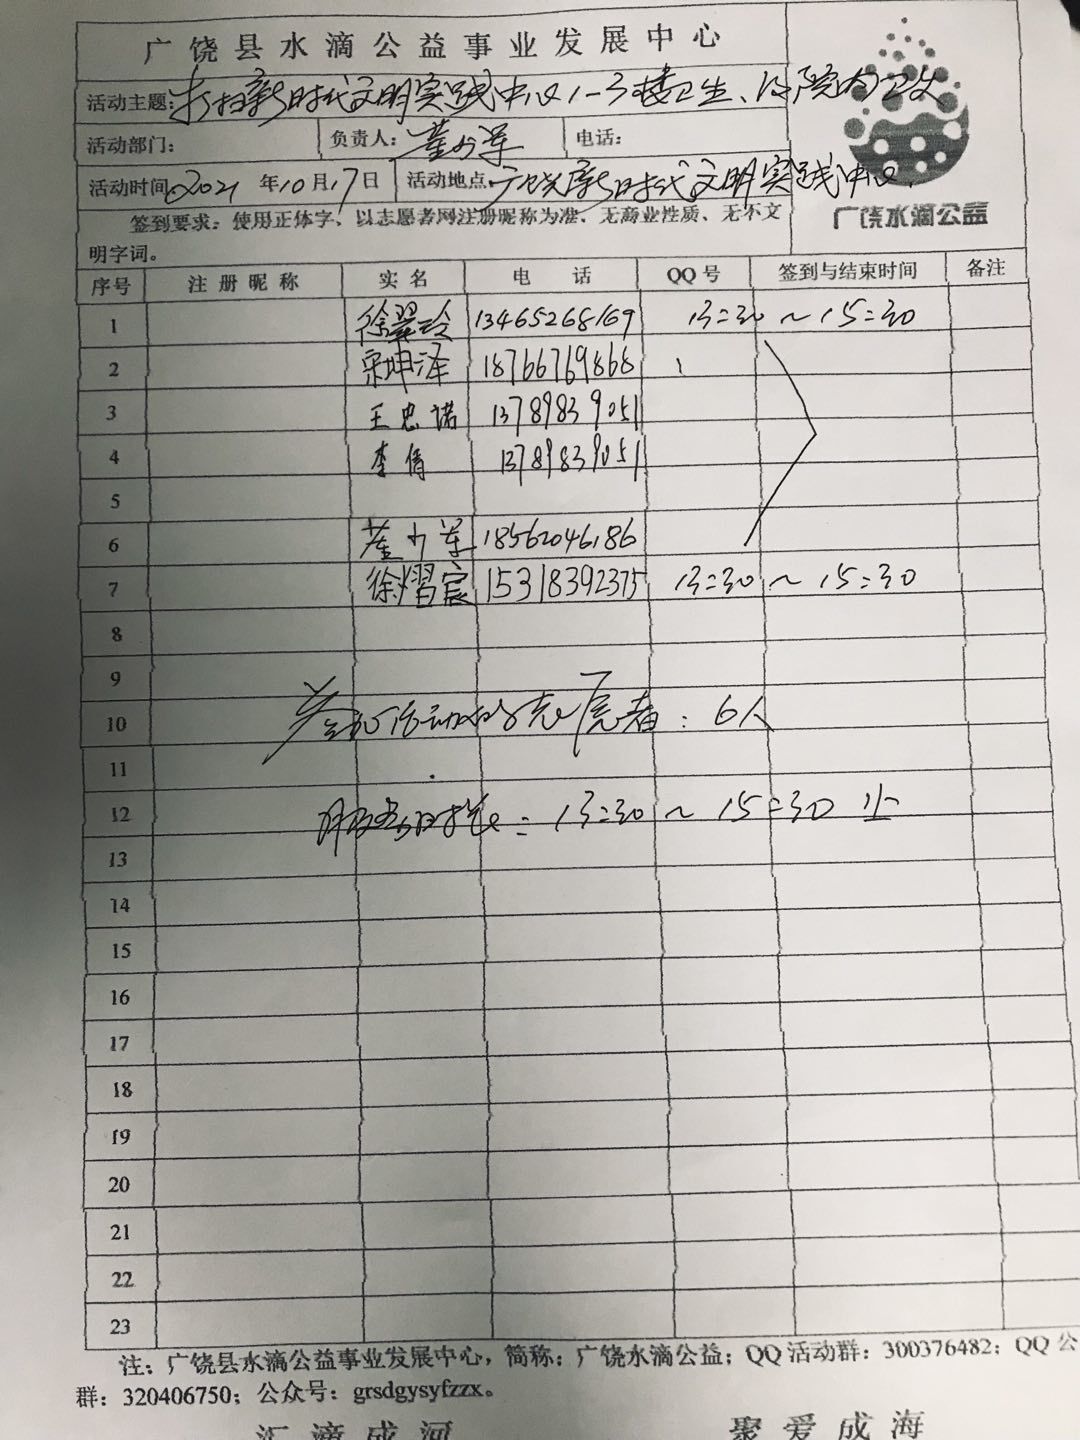 广饶县水滴公益事业发展中心
活动主题:打扫新时代文明实践中心1-3楼卫生、及院内卫生
活动部门: 负责人: 董少军 电话:
活动时间2021年10月17日 活动地点 广饶新时代文明实践中心.
广饶水滴公益
签到要求:使用正体字、以志愿者网注册昵称为准、无商业性质、无不文
明字词。
序号 注册昵称 实名 电话 QQ号 签到与结束时间 备注
1 徐翠玲 13465268169 13:30~15:30
2 宋坤泽 18766769868
3 王忠诺 13789839051
4 李倩 13789839051
5
6 董少军 18562046186
7 徐熠宸 15318392375 13:30~15:30
8
9
10 参加活动的志愿者:6人
11
12 服务时长:13:30~15:30止
13
14
15
16
17
18
19
20
21
22
23
注:广饶县水滴公益事业发展中心,简称:广饶水滴公益;QQ活动群:300376482;QQ公
群:320406750;公众号:grsdgysyfzzx。
汇滴成河 聚爱成海